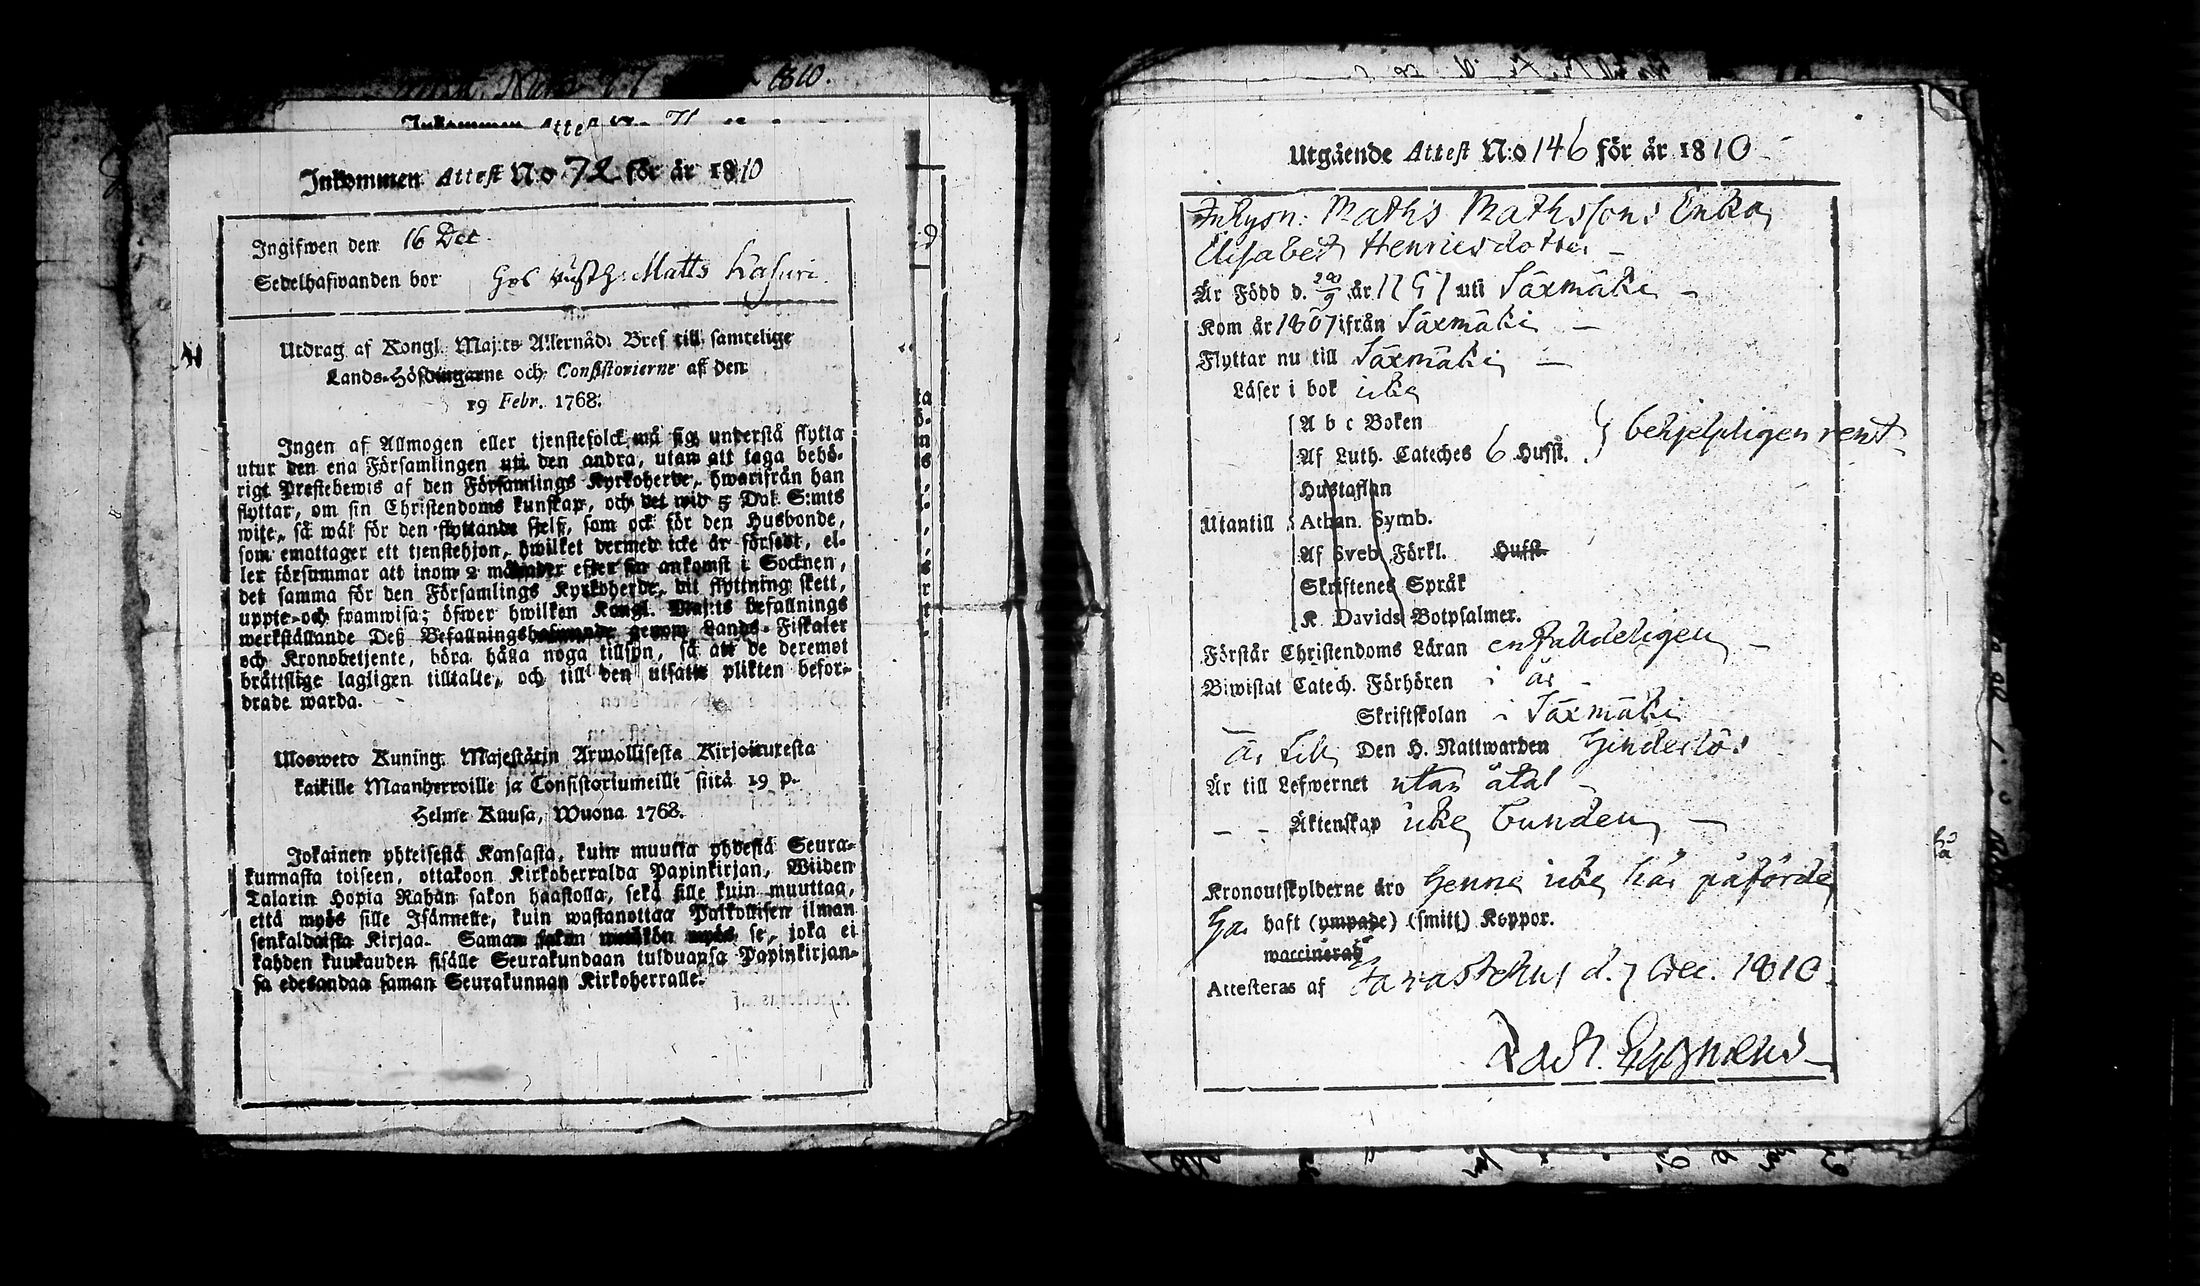 1810.
Inkommen Attest N:o 71
Inkommen Attest N:o 72 för år 1810
Ingifwen den 16 Dec
Sedelhafwanden bor hos Rusth: Matts Kasuri
Utdrag af Kongl. Maj:ts Allernåd: Bref till samtelige
Lands-Höfdingarne och Consistorierne aff den
19 Febr. 1768.
Ingen af Allmogen eller tjenstefolck må sig understå flytta
utur den ena Församlingen uti den andra, utan att taga behö-
rigt Prestebewis af den Församlings Kyrkoherde, hwarifrån han
flyttar, om sin Christendoms kunskap, och det wid 5 Dal. S:mts
wite, så wäl för den flyttande sjelf, som ock för den Husbonde,
som emottager ett tjenstehjon, hwilket dermed icke är försedt, el-
ler försummar att inom 2 månader efter sin ankomst i Socknen,
det samma för den Församlings Kyrkoherde, dit flyttning skett,
uppte- och framwisa; öfwer hwilken Kongl. Maj:ts befallnings
werkställande Deß Befallningshafwande genom Lands-Fiskaler
och Kronobetjente, böra hålla noga tillsyn, så att de deremot
bråttslige lagligen tilltalte, och till den utsatte plikten befor-
drade warda.
Ulosweto Kuning. Majestätin Armollisesta Kirjoituxesta
kaikille Maanherroille ja Consistoriumeille siitä 19 p.
Helme Kuusa, Wuona 1768.
Jokainen yhteisestä Kansasta, kuin muutta yhdestä Seura-
kunnasta toiseen, ottakoon Kirkoherralda Papinkirjan, Wiiden
Talarin Hopia Rahan sakon haastolla, sekä sille kuin muuttaa,
että myös sille Isännelle, kuin wastanottaa Palkollisen ilman
senkaldaista Kirjaa. Saman sakon wetäkön myös se, joka ei
kahden kuukauden sisälle Seurakundaan tulduansa Papinkirjan-
sa edesandaa saman Seurakunnan Kirkoherralle.
Utgående Attest N:o 146 för år 1810
Inhysn: Mathis Mathssons Enka
Elisabet Henricsdotter
Är Född d. år uti Säxmäki
Kom år 1807 ifrån Säxmäki
Flyttar nu till Säxmäki
Läser i bok icke
A b c Boken
Af Luth. Cateches 6 Hufst. behjelpligen rent
Hustaflan
Utantill Athan. Symb.
Af Sveb. Förkl. Hufst.
Skriftenes Språk
K. Davids Botpsalmer.
Förstår Christendoms Läran enfaldeligen
Biwistat Catech. Förhören i år
Skriftskolan i Säxmäki
är till Den H. Nattwarden hinderlös
Är till Lefwernet utan åtal
Äktenskap icke bunden
Kronoutskylderne äro henne icke här påförde
Ha haft (ympade) (smitt) Koppor.
waccinerad
Attesteras af Tavastehus d. 7 Dec. 1810.
Zach. Cygnæus